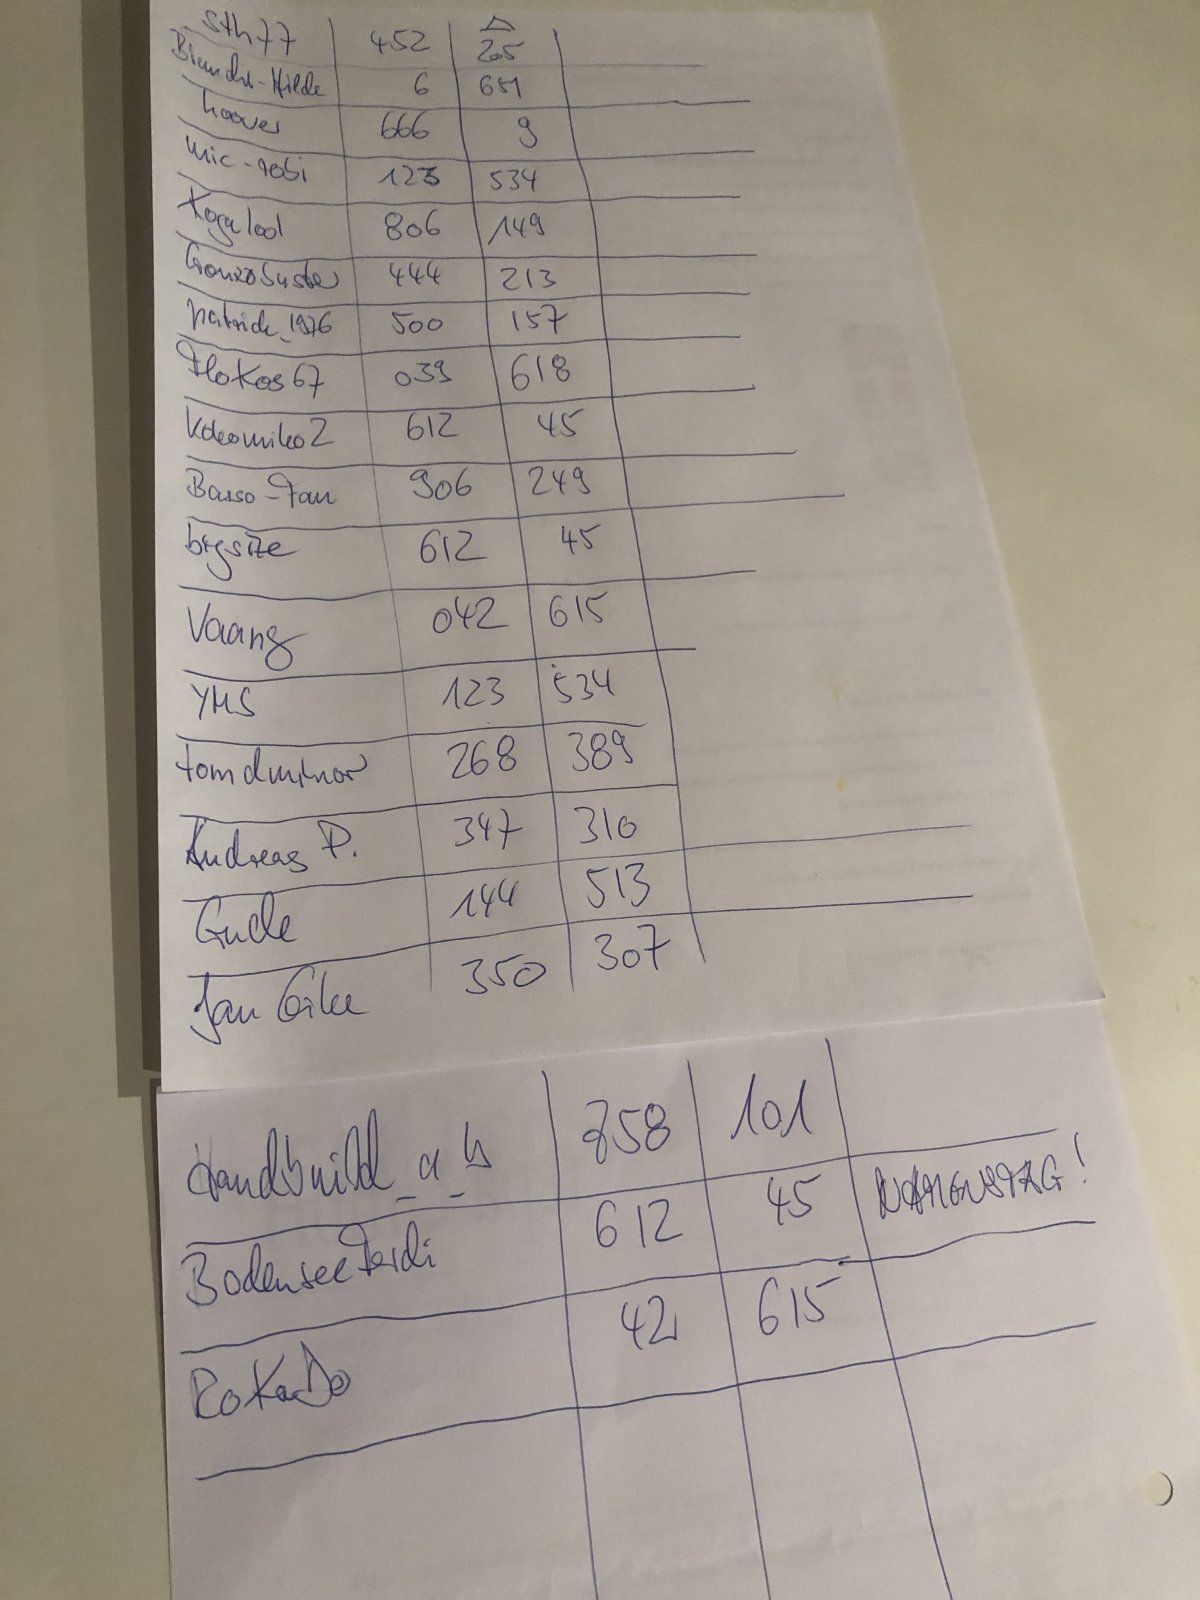 sth77 452 Δ 205
Bianchi-Hilde 6 651
hoover 666 9
mic-robi 123 534
Kogalool 806 149
Gonzo Buster 444 213
patrick_1976 500 157
FloKos67 039 618
Kdeomiko2 612 45
Basso-Fan 906 249
bigsize 612 45
Vaang 042 615
YHS 123 534
tomdminor 268 389
Andreas P. 347 310
Gude 144 513
Jan Gike 350 307
Handbuild_a_b 758 101
BodenseeFerdi 612 45 NAMENSTAG!
RoKaDo 42 615